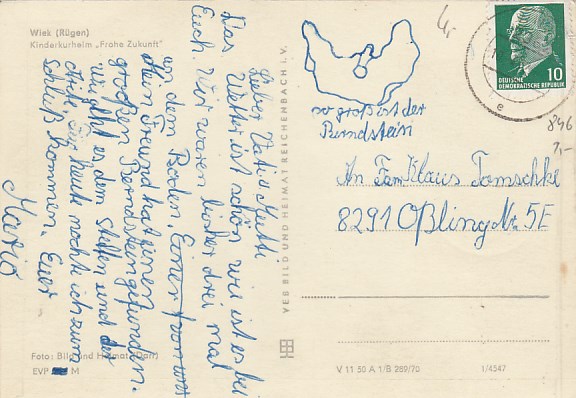 Wiek (Rügen)
Kinderkurheim „Frohe Zukunft"
Lieber Vati u Mutti
Das Wetter ist schön wie ist es bei
Euch. Wir waren bisher drei mal
an dem Boden. Einer von
Mein Freund hat einen
großen Bernstein gefunden.
Wie geht es dem Steffen und der
heute möchte ich zum
Schluß kommen. Euer
Mario
Foto: Bild und Heimat (Darr)
EVP M
VEB BILD UND HEIMAT REICHENBACH I. V.
so groß ist der
Bernstein
4,-
DEUTSCHE
DEMOKRATISCHE REPUBLIK
10
e
846
7,-
An Fam Klaus Tomschke
8291 Oßling Nr. 5E
V 11 50 A 1/B 289/70
1/4547